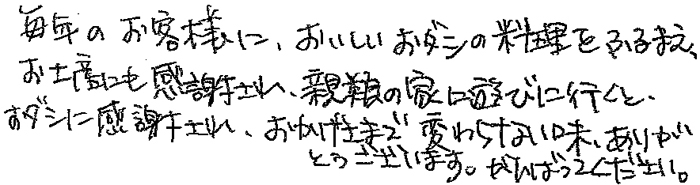 毎年のお客様に、おいしいおダシの料理をふるまえ、
お土産にも感謝され、親類の家に遊びに行くと、
おダシに感謝され、おかげさまで変わらない味、ありが
とうございます。がんばってください。